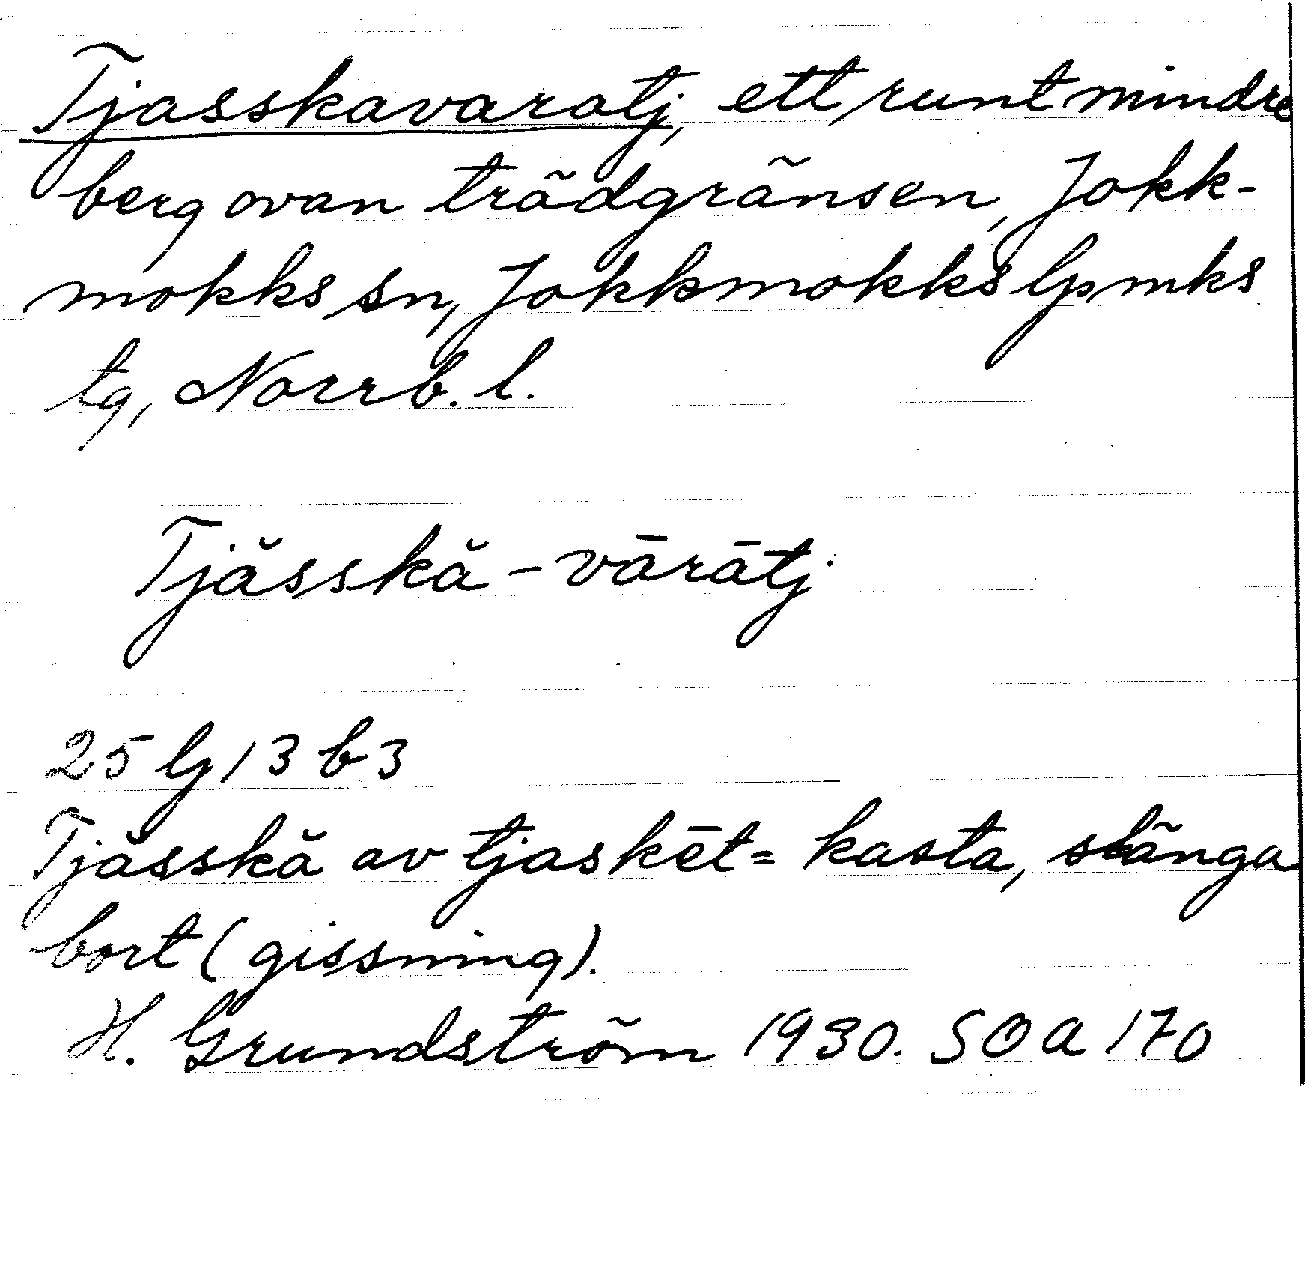 Tjasskavaratj, ett runt mindre
berg ovan trädgränsen, Jokk-
mokks sn, Jokkmokks lpmks
tg, Norrb. l.
Tjăsskă-vārātj
25 Ij 13 b 3
Tjăsskă av tjaskēt = kasta, slänga
bort (gissning).
H. Grundström 1930. SOA 170